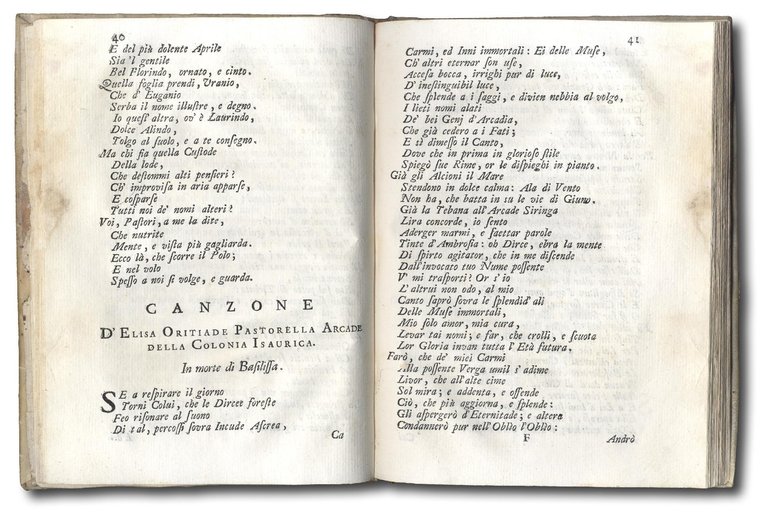 40
E del più dolente Aprile
Sia 'l gentile
Bel Florindo, ornato, e cinto.
Quella foglia prendi, Uranio,
Che d' Euganio
Serba il nome illuſtre, e degno.
Io queſt' altra, ov' è Laurindo,
Dolce Alindo,
Tolgo al ſuolo, e a te conſegno.
Ma chi ſia quella Cuſtode
Della lode,
Che deſtommi alti penſieri?
Ch' improviſa in aria apparſe,
E coſparſe
Tutti noi de' nomi alteri?
Voi, Paſtori, a me la dite,
Che nutrite
Mente, e viſta più gagliarda.
Ecco là, che ſcorre il Polo;
E nel volo
Speſſo a noi ſi volge, e guarda.
CANZONE
D'ELISA ORITIADE PASTORELLA ARCADE
DELLA COLONIA ISAURICA.
In morte di Baſiliſſa.
SE a reſpirare il giorno
Torni Colui, che le Dircee foreſte
Feo riſonare al ſuono
Di tal, percoſſi ſovra Incude Aſcrea,
Ca
41
Carmi, ed Inni immortali: Ei delle Muſe,
Ch' altri eternar ſon uſe,
Acceſa bocca, irrighi pur di luce,
D' ineſtinguibil luce,
Che ſplende a i ſaggi, e divien nebbia al volgo,
I lieti nomi alati
De' bei Genj d' Arcadia,
Che già cedero a i Fati;
E sì dimeſſo il Canto,
Dove che in prima in glorioſo ſtile
Spiegò ſue Rime, or le diſpieghi in pianto.
Già gli Alcioni il Mare
Stendono in dolce calma: Ala di Vento
Non ha, che batta in ſu le vie di Giuno.
Già la Tebana all' Arcade Siringa
Lira concorde, io ſento
Aderger marmi, e ſaettar parole
Tinte d' Ambroſia: oh Dirce, ebra la mente
Di ſpirto agitator, che in me diſcende
Dall' invocato tuo Nume poſſente
V' mi traſporti? Or s' io
L' altrui non odo, al mio
Canto ſaprò ſovra le ſplendid' ali
Delle Muſe immortali,
Mio ſolo amor, mia cura,
Levar tai nomi; e far, che crolli, e ſcuota
Lor Gloria invan tutta l' Età futura.
Farò, che de' miei Carmi
Alla poſſente Verga umil s' adime
Livor, che all' alte cime
Sol mira; e addenta, e offende
Ciò, che più aggiorna, e ſplende:
Gli aſpergerò d' Eternitade; e altero
Condannerò pur nell' Oblìo l' Oblìo:
F Andrò